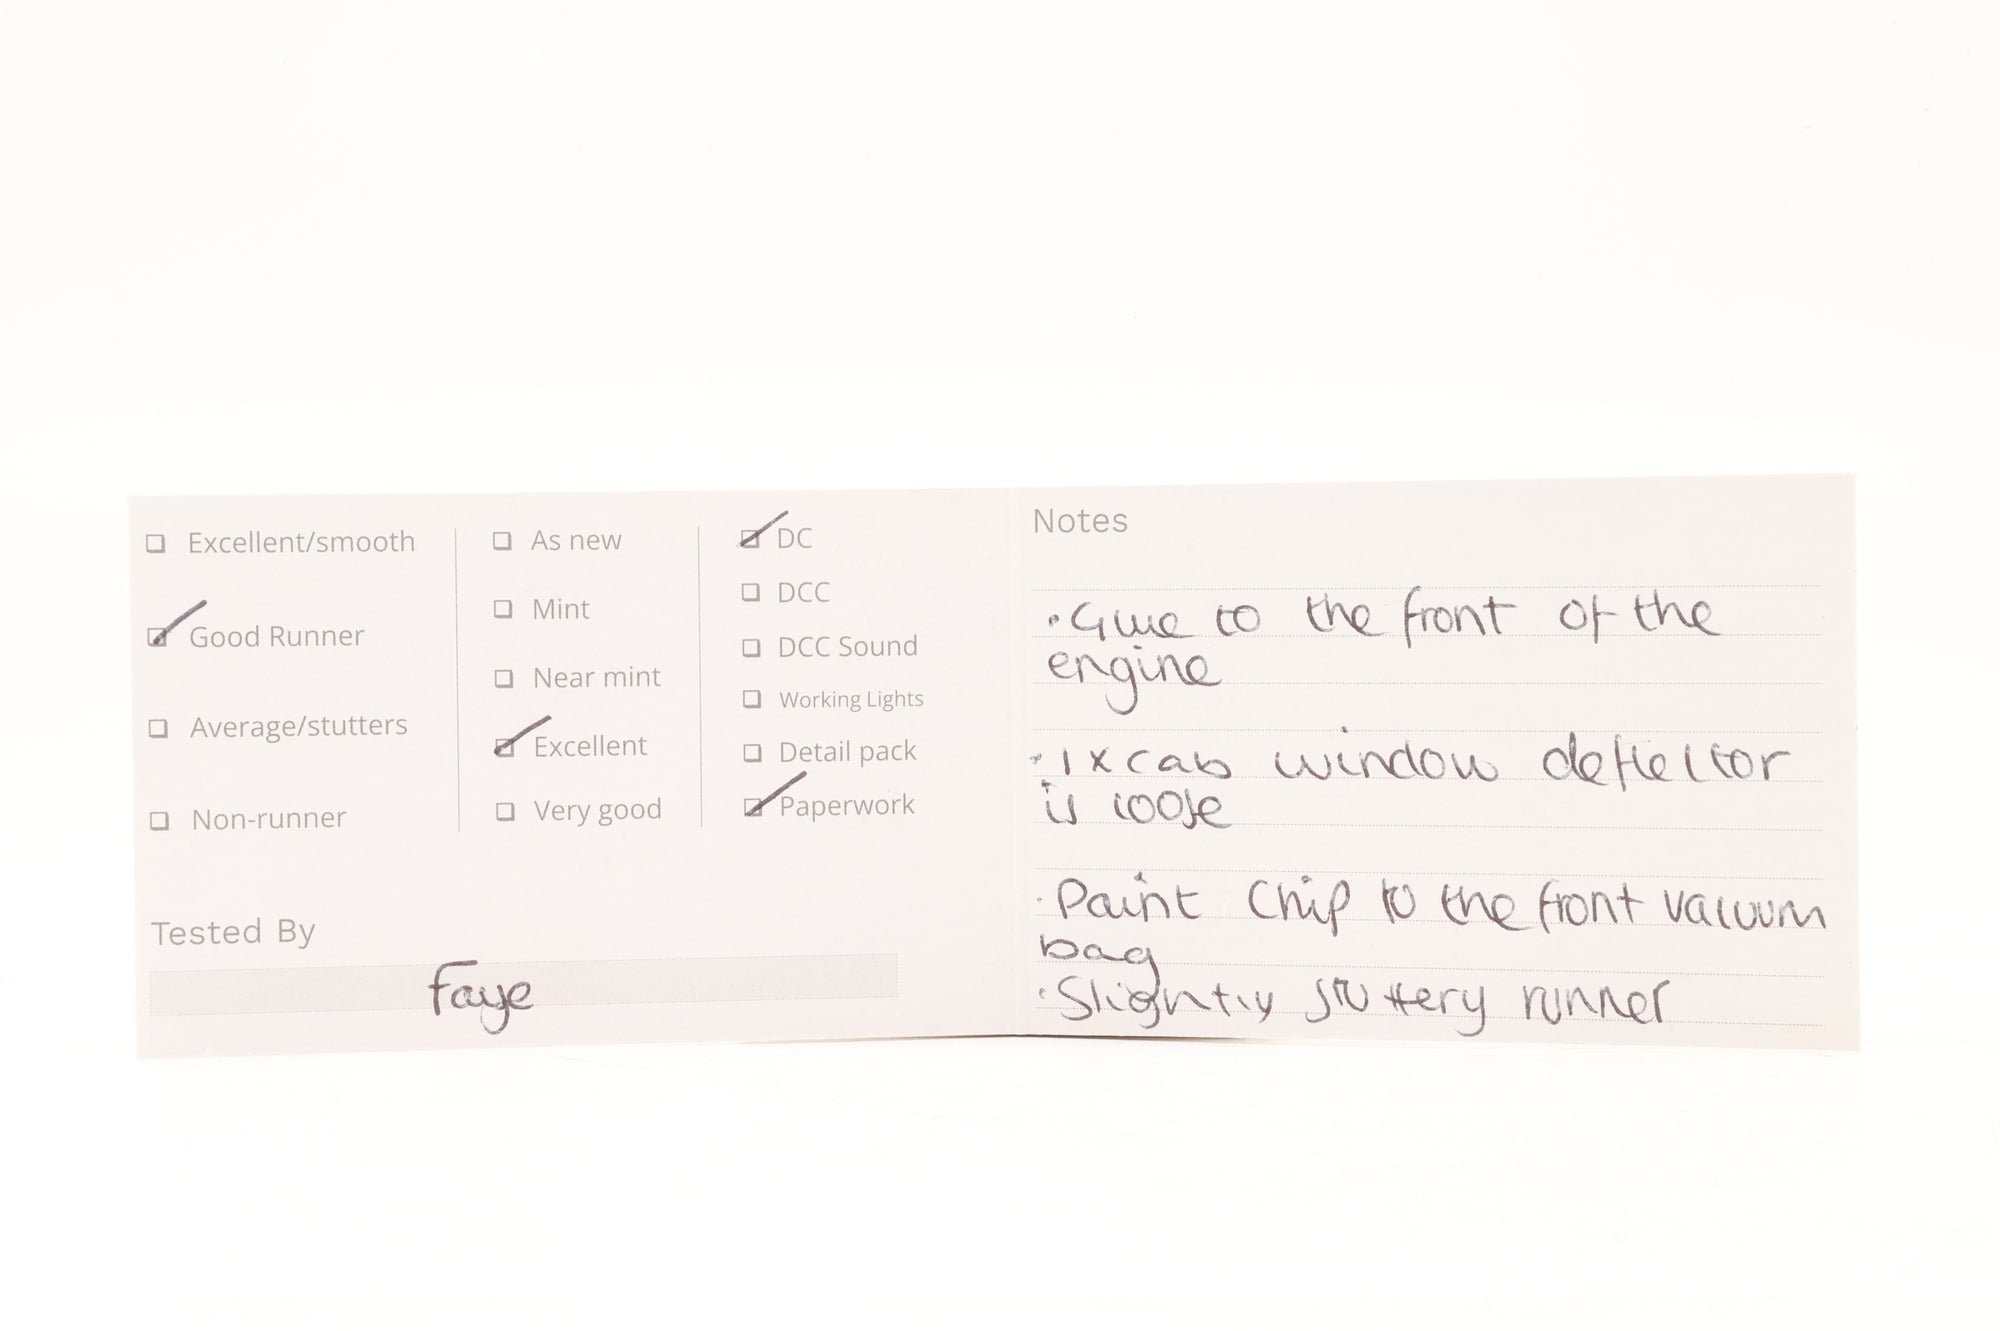 Excellent/smooth
Good Runner
Average/stutters
Non-runner
As new
Mint
Near mint
Excellent
Very good
DC
DCC
DCC Sound
Working Lights
Detail pack
Paperwork
Tested By
Faye
Notes
• Glue to the front of the
engine
• 1x cab window deflector
is loose
• Paint Chip to the front vacuum
bag
• Slightly stuttery runner